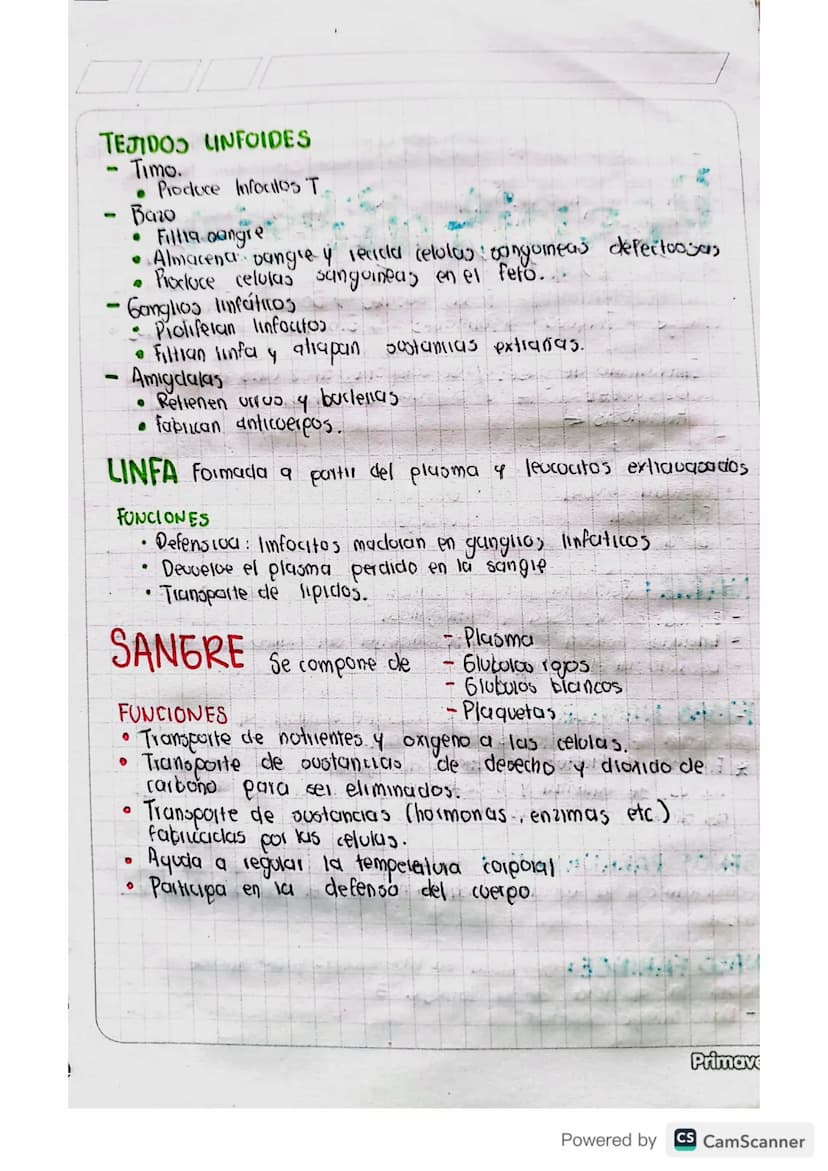 TEJIDOS LINFOIDES
- Timo.
• Produce linfocitos T
- Bazo
• Filtra sangre
• Almacena sangre y recicla celulas sanguineas defectuosas
• Produce celulas sanguineas en el feto.
- Ganglios linfáticos
• Proliferan linfocitos
• Filtran linfa y atrapan sustancias extrañas.
- Amigdalas
• Retienen virus y bacterias
• Fabrican anticuerpos.
LINFA Formada a partir del plasma y leucocitos extravasados
FUNCIONES
• Defensiva: linfocitos maduran en ganglios linfaticos
• Devuelve el plasma perdido en la sangre
• Transporte de lipidos.
SANGRE Se compone de
- Plasma
- Globulos rojos
- Globulos blancos
- Plaquetas
FUNCIONES
• Transporte de nutrientes y oxigeno a las celulas.
• Transporte de sustancias de desecho y dioxido de
carbono para ser eliminados.
• Transporte de sustancias (hormonas, enzimas etc)
fabricadas por las celulas.
• Ayuda a regular la temperatura corporal
• Participa en la defensa del cuerpo
Primave
Powered by CS CamScanner